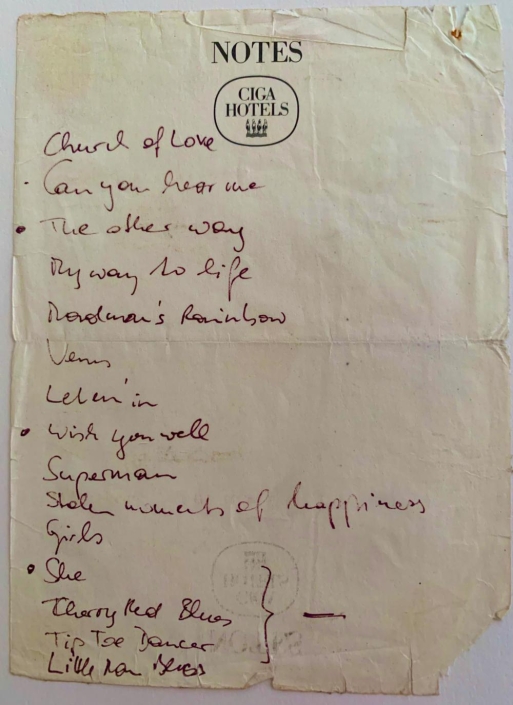 NOTES
CIGA
HOTELS
Church of Love
Can you hear me
The other way
My way to life
Madman's Rainbow
Venus
Let em' in
Wish you well
Superman
Stolen moments of happiness
Girls
She
Cherry Red Blues
Tip Toe Dancer
Little Man Blues